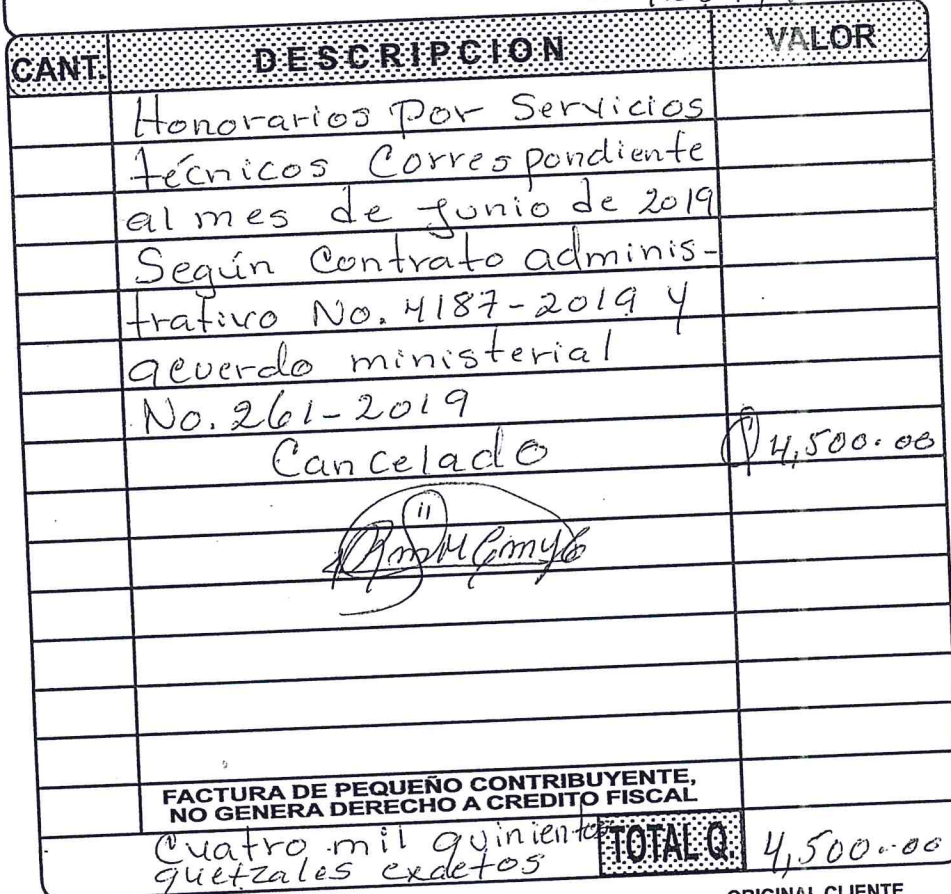 CANT. DESCRIPCION VALOR
Honorarios Por Servicios
técnicos Correspondiente
al mes de Junio de 2019
Según Contrato adminis-
trativo No. 4187-2019 y
acuerdo ministerial
No. 261-2019
Cancelado Q 4,500.00
FACTURA DE PEQUEÑO CONTRIBUYENTE,
NO GENERA DERECHO A CREDITO FISCAL
Cuatro mil quinientos TOTAL Q 4,500.00
quetzales exactos
ORIGINAL CLIENTE